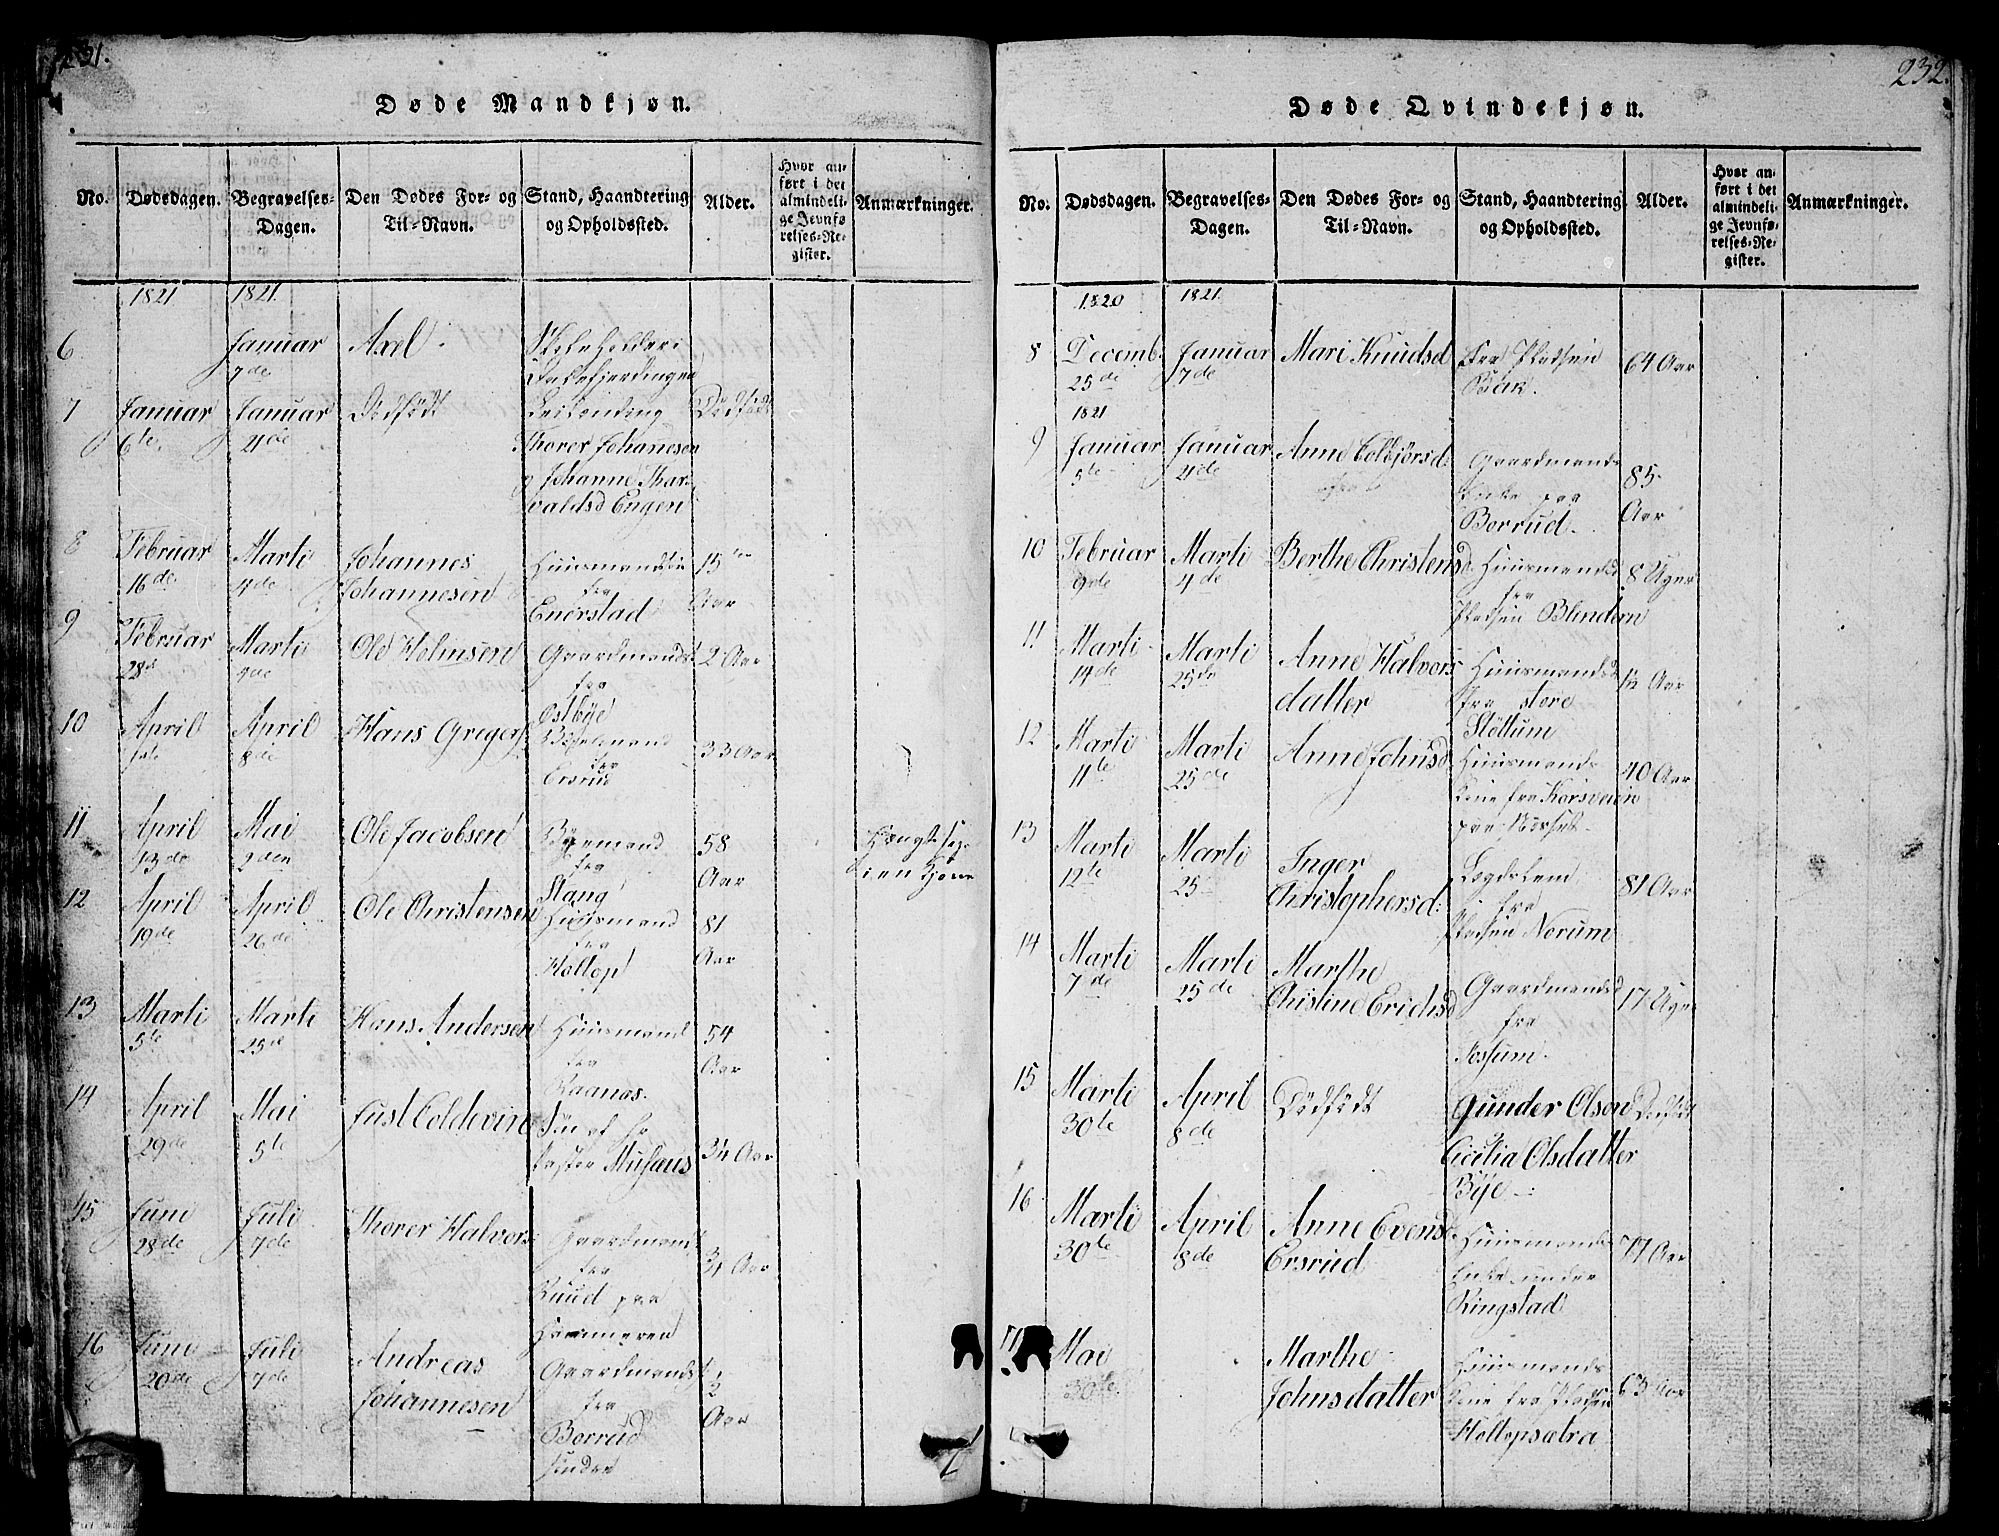 231.
Døde Mandkjøn.
No.
Dødsdagen.
Begravelses-
Dagen.
Den Dødes For- og
Til-Navn.
Stand, Haandtering
og Opholdssted.
Alder.
Hvor an-
ført i det
almindeli-
ge Jevnfø-
relses-Re-
gister.
Anmærkninger.
1821
1821.
6
Januar
7de
Axel
Skoleholder i
7
Januar
6te
Januar
4de
Dødfødt
Dødfødt
Thorer Johanesen
Johanne Thor-
valdsd Engen
8
Februar
16de
Marti
4de
Johannes
Johannesen
fra
Enerstad
15
Aar
9
Februar
28
Marti
4de
Ole Holmsen
Gaardmands
fra
Østbye
2 Aar
10
April
1ste
April
8de
Hans Gregers
fra
Ersrud
33 Aar
11
April
13de
Mai
2den
Ole Jacobsen
fra
Stang
58
Aar
12
April
19de
April
26de
Ole Christensen
Huusmand
fra
Holtop
81
Aar
13
Marti
5te
Marti
25de
Hans Andersen
Huusmand
fra
Raanas.
54
Aar
14
April
29de
Mai
5te
Just Coldevin
Søn af Hr
Pastor Musæus
34 Aar
15
Juni
28de
Juli
7de
Thorer Halvors
Gaardmand
fra
Ruud paa
Hammeren
34 Aar
16
Juni
20de
Juli
7de
Andreas
Johannesen
Gaardmands
fra
Borrud
søndre
½
Aar
232.
Døde Qvindekjøn.
No.
Dødsdagen.
Begravelses-
Dagen.
Den Dødes For- og
Til-Navn.
Stand, Haandtering
og Opholdssted.
Alder.
Hvor an-
ført i det
almindeli-
ge Jevnfø-
relses-Re-
gister.
Anmærkninger.
1820
1821.
8
Decemb.
25de
Januar
7de
Mari Knudsd
fra Pladsen
Bak.
64 Aar
1821
9
Januar
5te
Januar
4de
Anne Colbjørsd:
Gaardmands
Enke paa
Borrud
85
Aar
10
Februar
9de
Marti
4de
Berthe Christensd.
Huusmandsd
fra
Pladsen Blindern
8 Uger
11
Marti
14de
Marti
25de
Anne Halvors
datter
Huusmandsd
fra store
Støttum
12 Aar
12
Marti
11te
Marti
25de
Anne Johnsd.
Huusmands
Kone fra Korsveien
paa Norset
40 Aar
13
Marti
12te
Marti
25
Inger
Christophersd:
Lægdslem
fra
Pladsen Norum
81 Aar
14
Marti
7de
Marti
25de
Marthe
Christine Erichsd
Gaardmandsd
fra
Fossum.
17 Uger
15
Marti
30te
April
8de
Dødfødt
Gunder Olsen
Cicilia Olsdatter
Bye
Dødfødt
16
Marti
30te
April
8de
Anne Evensd
Ersrud
Huusmands
Enke under
Ringstad
77 Aar
17
Mai
30te
Marthe
Johnsdatter
Huusmands
Kone fra Pladsen
Holtopsætra
63 Aar